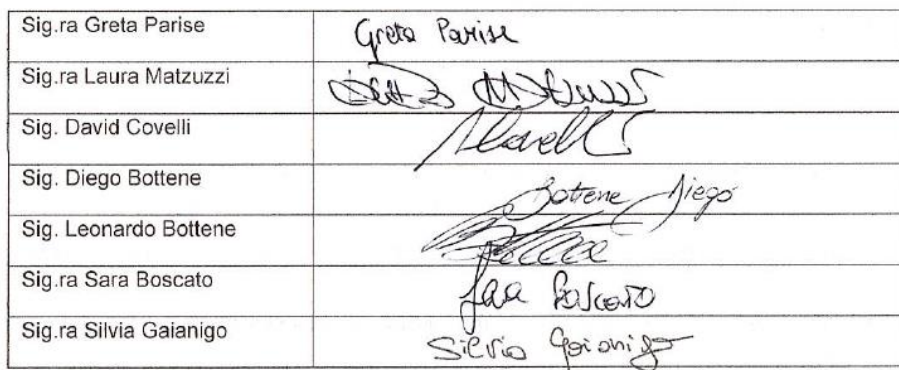 Sig.ra Greta Parise Greta Parise
Sig.ra Laura Matzuzzi
Sig. David Covelli
Sig. Diego Bottene Bottene Diego
Sig. Leonardo Bottene
Sig.ra Sara Boscato Sara Boscato
Sig.ra Silvia Gaianigo Silvia Gaianigo